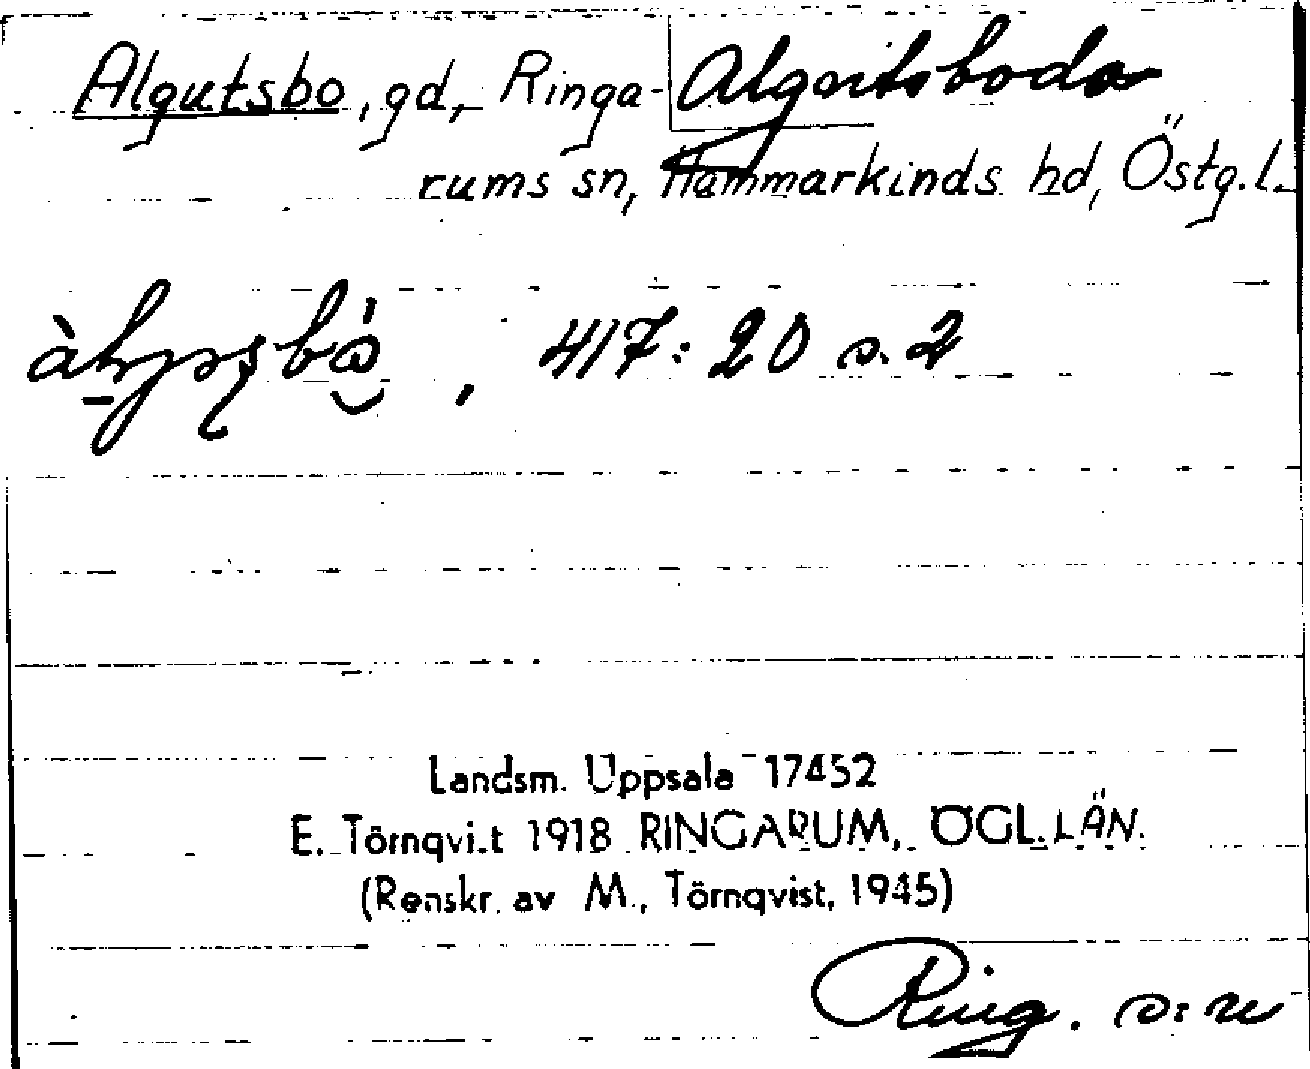 Algutsbo, gd, Ringa- Algutsboda
rums sn, Hammarkinds hd, Östg.l.
417: 20 s. 2
Landsm. Uppsala 17452
E. Törnqvist 1918 RINGARUM, ÖGL. LÄN.
(Renskr. av M. Törnqvist, 1945)
Ring. s:n